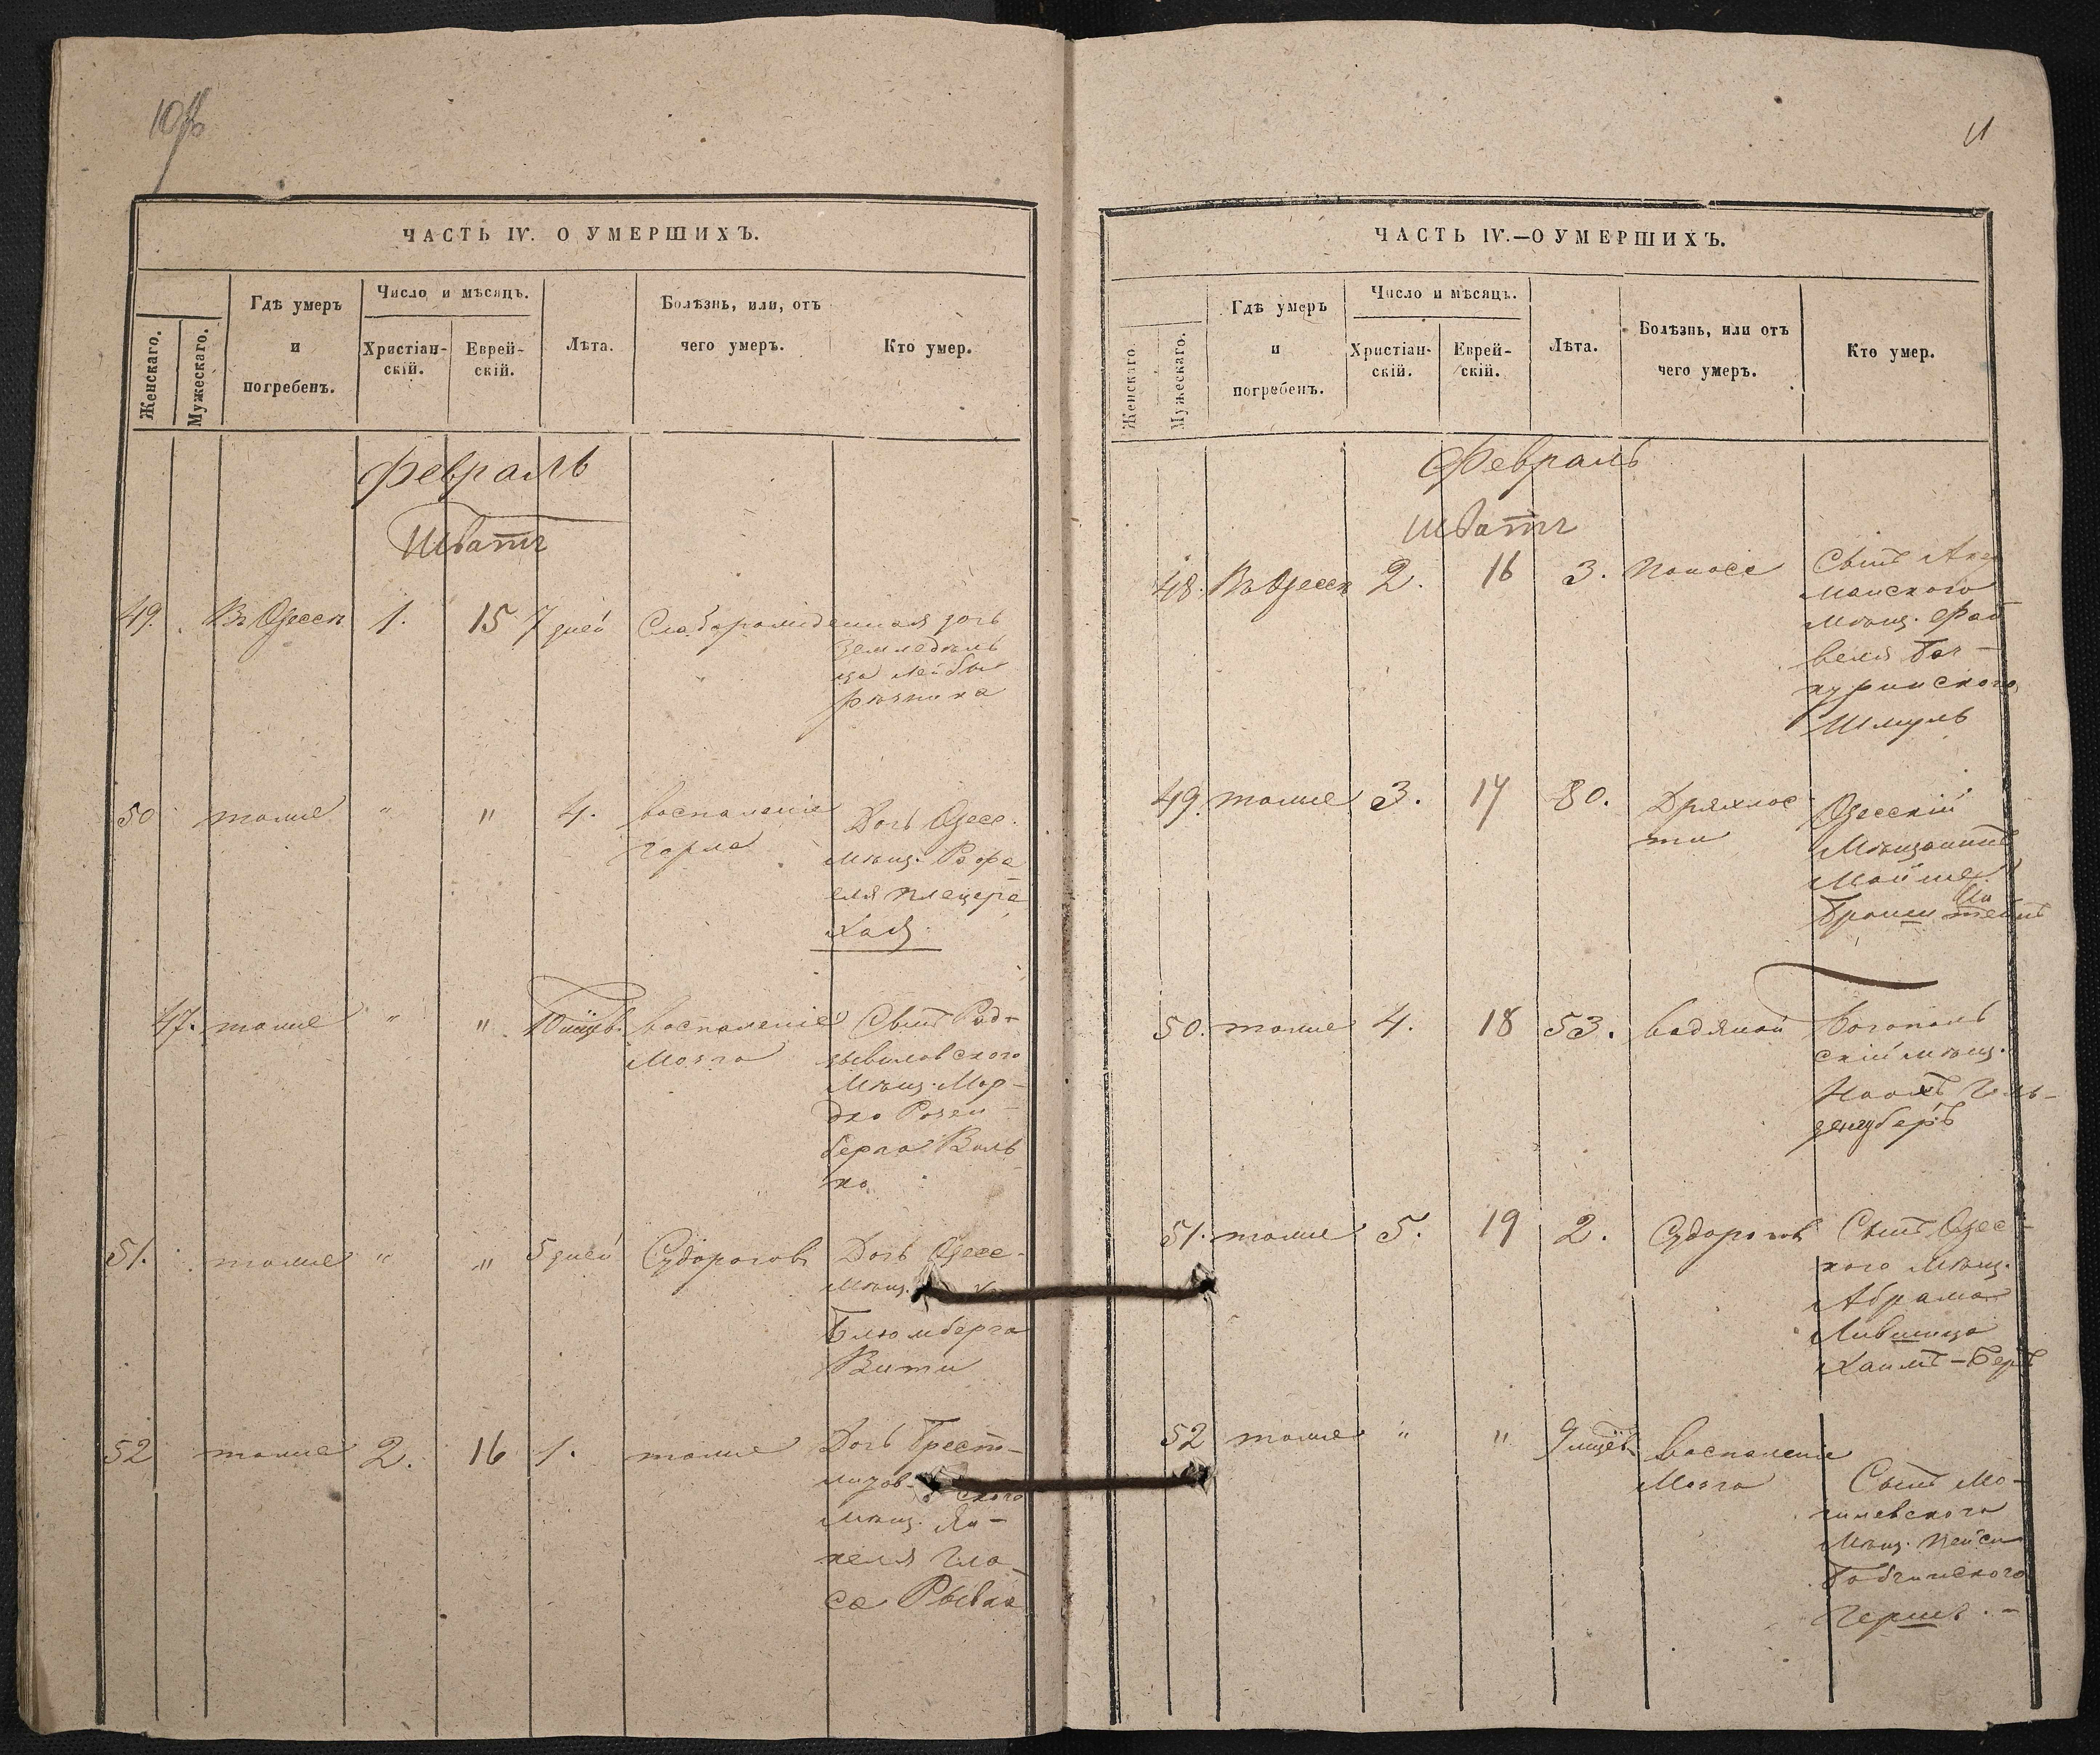 10об
ЧАСТЬ IV. О УМЕРШИХЪ.
Женскаго.
Мужескаго.
Гдѣ умеръ
и
погребенъ.
Число и мѣсяцъ.
Христіан-
скій.
Еврей-
скій.
Лѣта.
Болѣзнь, или, отъ
чего умеръ.
Кто умер.
Февраль
Шватъ
49. Въ Одессѣ 1. 15 7 дней Слаборожденная дочь
Земледѣль
ца Лейбы
Рѣзника
50 тоже " " 4. воспаленіе Дочь Одесс.
горла мѣщ. Рафа
еля Плецера
Хая.
47. тоже " " 10 мцѣв. воспаленіе Сынъ Рад-
мозга зывиловского
мѣщ. Мор-
дко Розен-
берга Воль
ко
51. тоже " " 5 дней Судорогов Дочь Одесс-
мѣщ.
Блюмберга
Вити
52 тоже 2. 16 1. тоже Дочь Брест-
литов-ского
мѣщ. Ян-
келя Гла-
са Рывка
11
ЧАСТЬ IV.—О УМЕРШИХЪ.
Женскаго.
Мужескаго.
Гдѣ умеръ
и
погребенъ.
Число и мѣсяцъ.
Христіан-
скій.
Еврей-
скій.
Лѣта.
Болѣзнь, или отъ
чего умеръ.
Кто умер.
Февраль
Шватъ
48. Въ Одессѣ 2. 16 3. Поноса Сынъ Акер
манского
мѣщ. Фай
веля
Шмуль
49. тоже 3. 17 80. Дряхлос Одесскій
ти Мѣщанинъ
Мойше
Бронштейнъ
50. тоже 4. 18 53. водяной Богополь
скій мѣщ.
Гиль-
денгуберъ
51. тоже 5. 19 2. Судорогов Сынъ Одес-
кого мѣщ.
Абрама
Лившица
Хаимъ-Беръ
52 тоже " " 9 мцѣв. воспаленіе
мозга Сынъ Мо-
гилевского
мѣщ. Пейси
Бобчинского
Герше.-